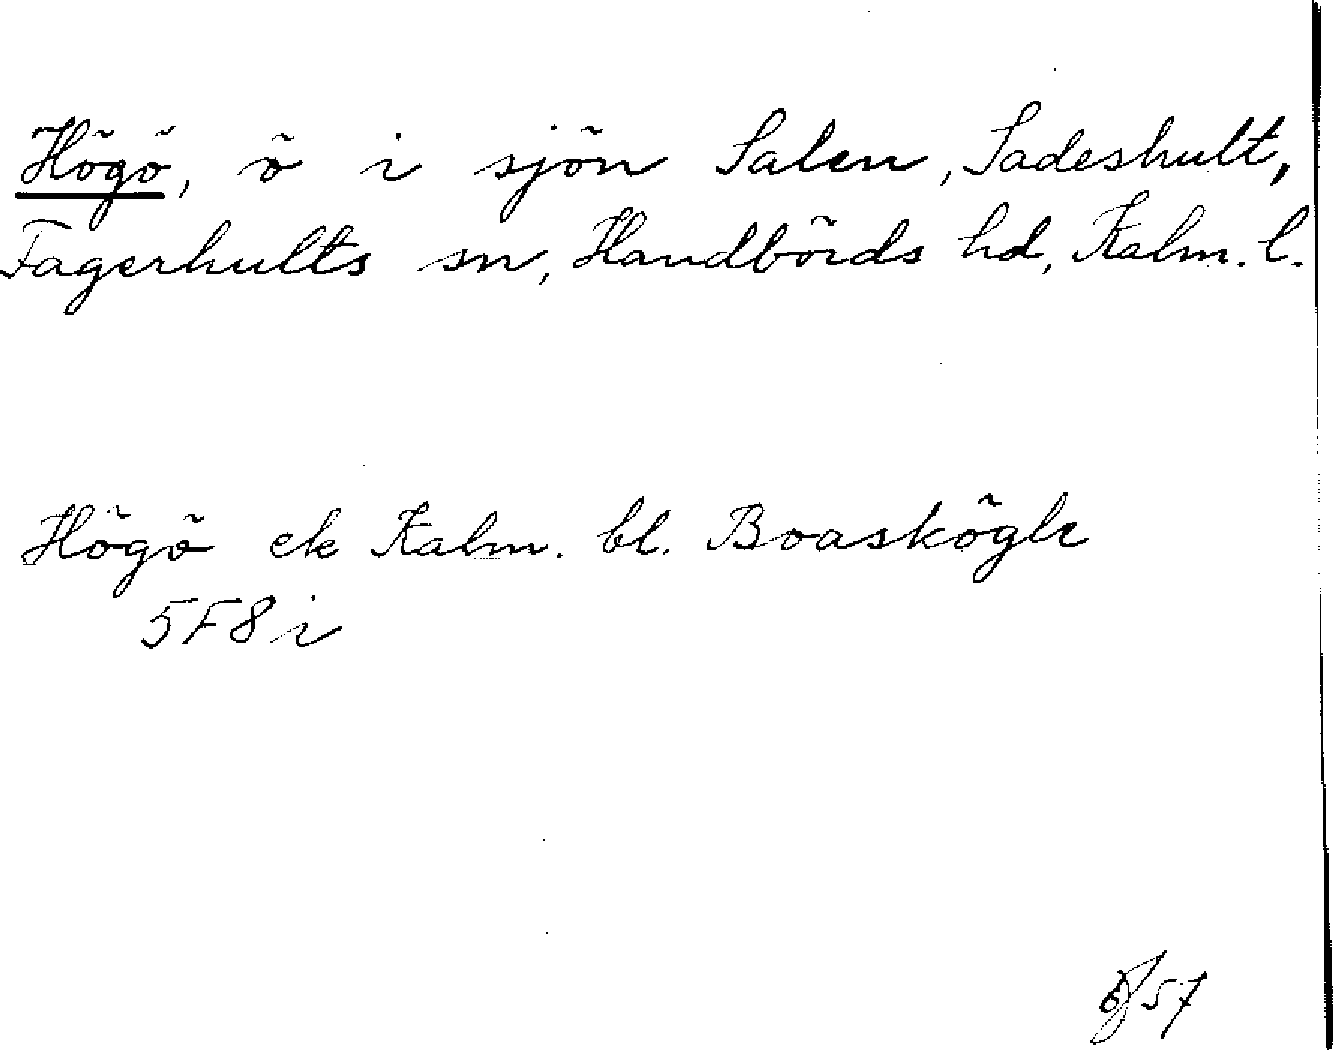 Högö, ö i sjön Salen, Sadeshult,
Fagerhults sn, Handbörds hd, Kalm. l.
Högö ek Kalm. bl. Boaskögle
5F8i
57